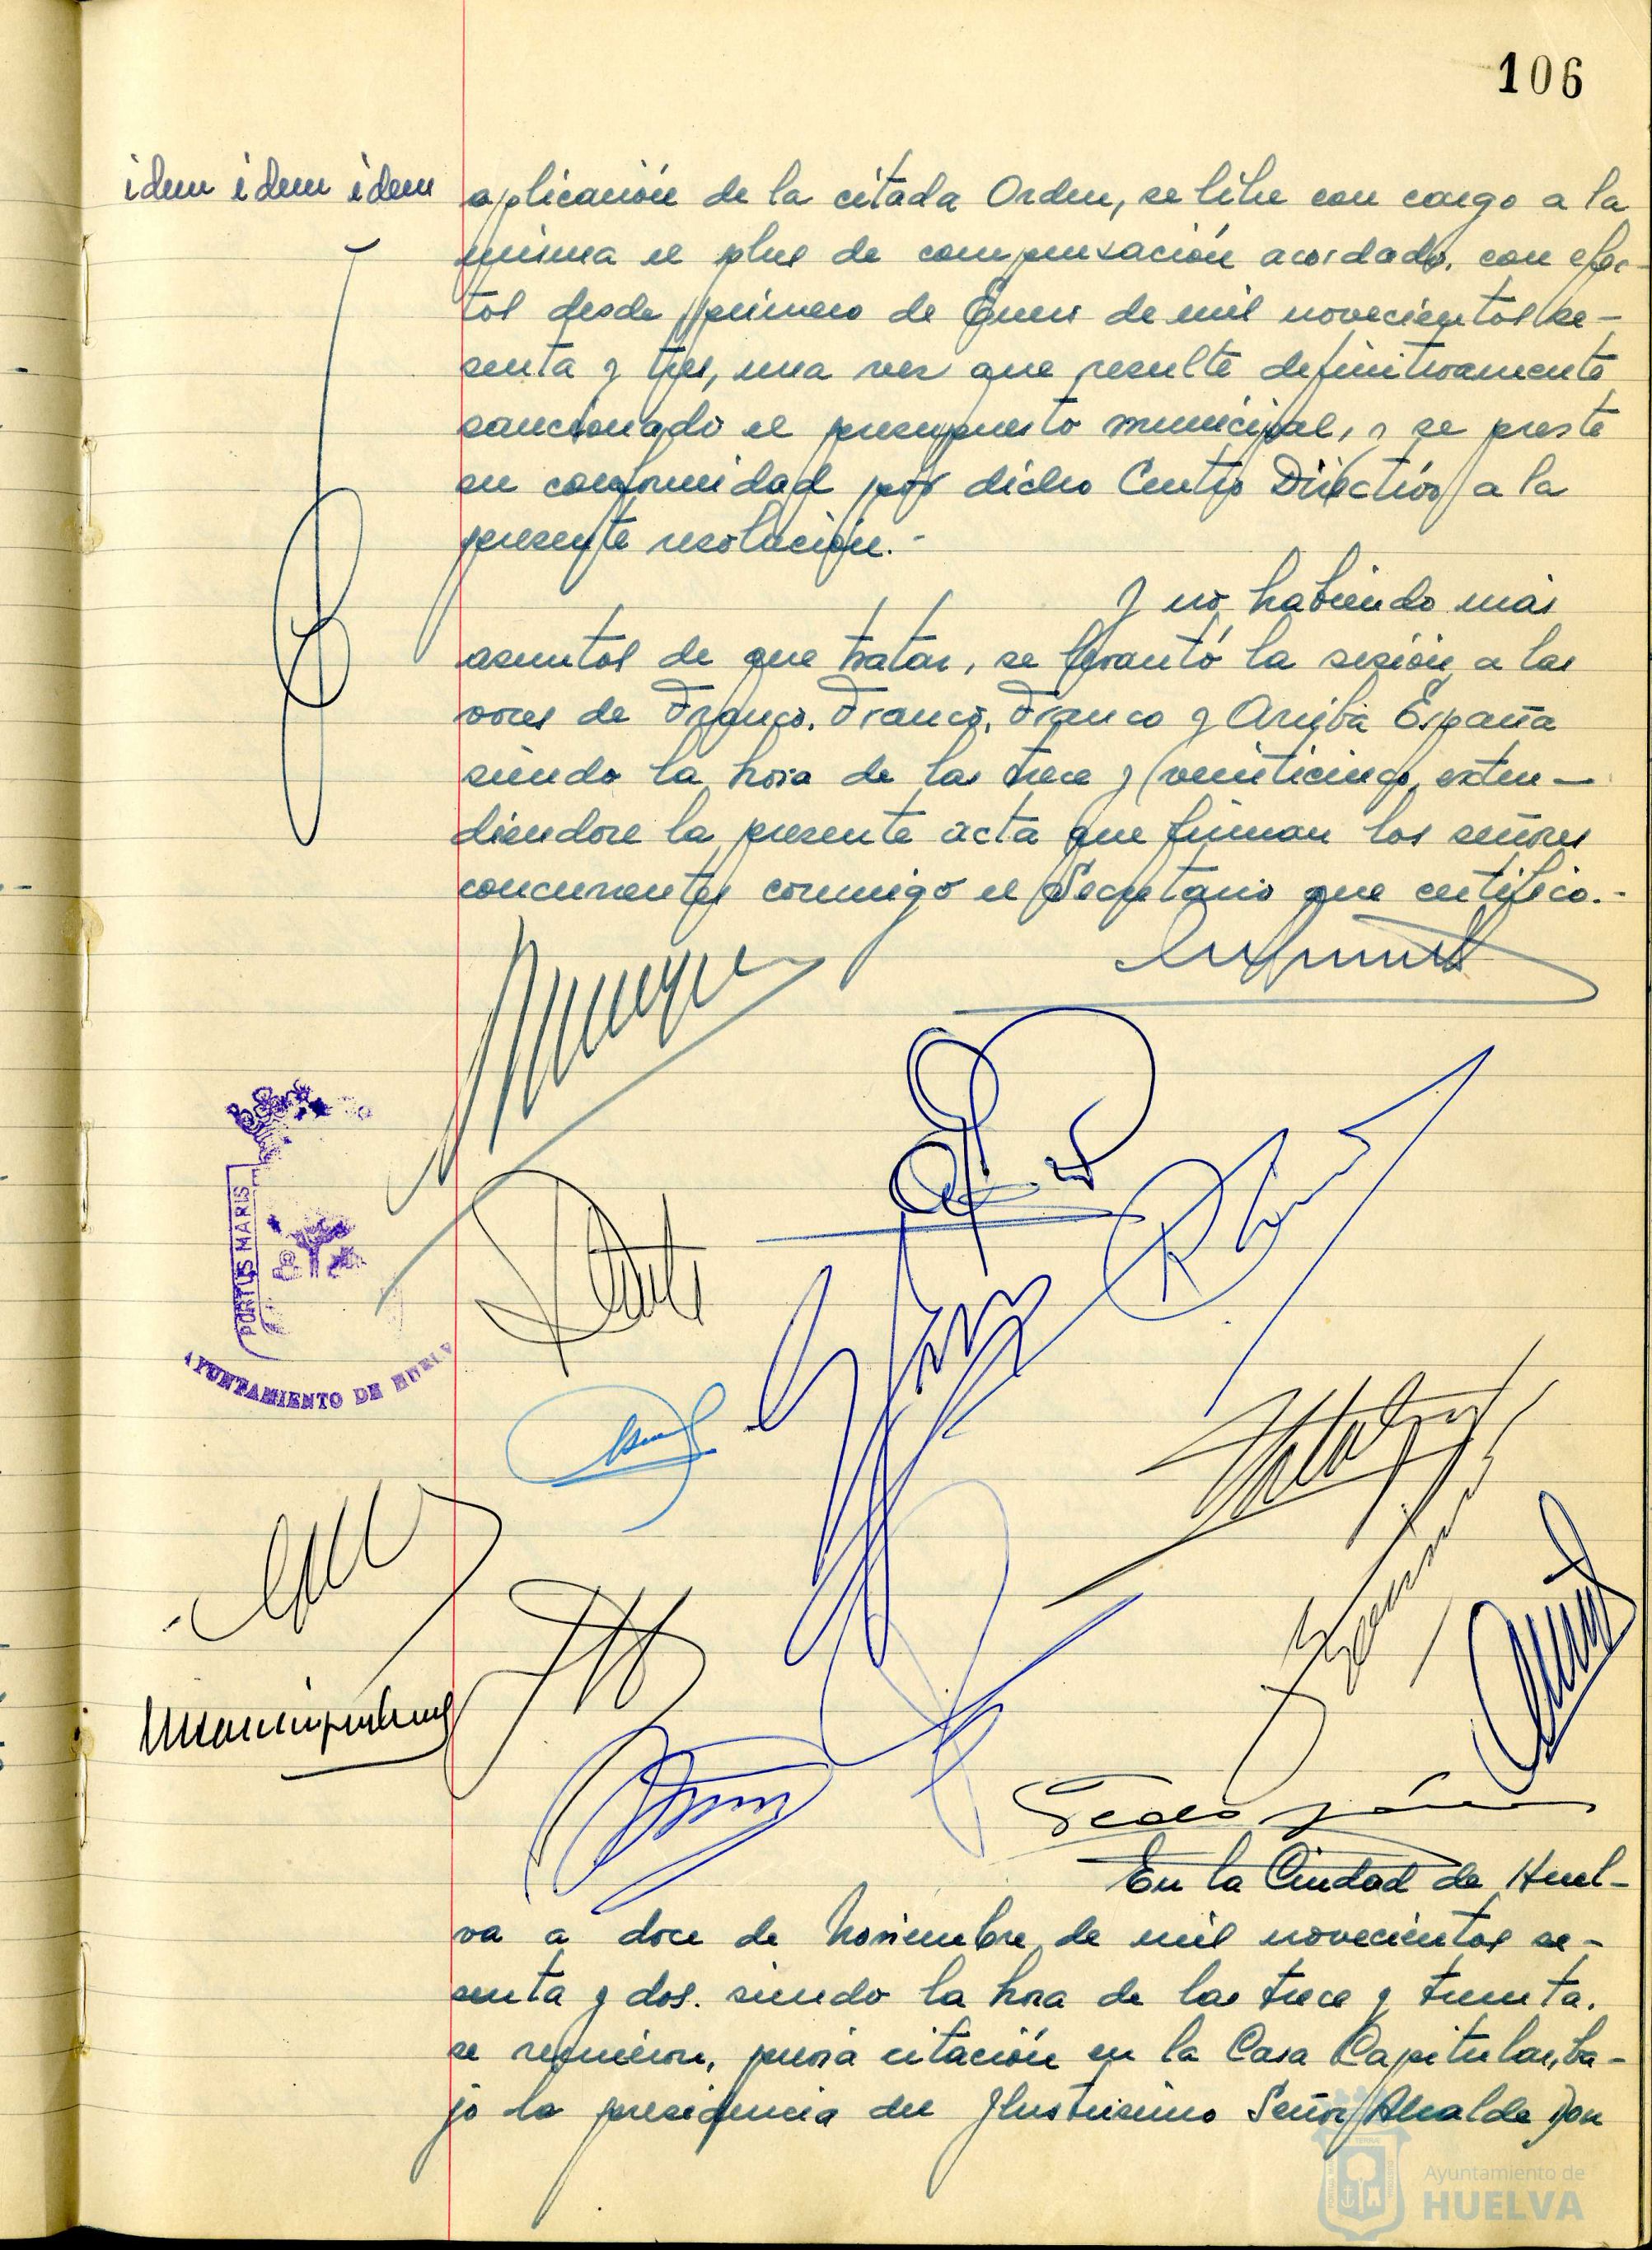 106
idem idem idem
aplicación de la citada Orden, se libre con cargo a la
misma el plus de compensación acordado, con efec-
tos desde primero de Enero de mil novecientos se-
senta y tres, una vez que resulte definitivamente
sancionado el presupuesto municipal, y se preste
su conformidad por dicho Centro Directivo a la
presente resolución.-
Y no habiendo más
asuntos de que tratar, se levantó la sesión a las
voces de Franco, Franco, Franco y Arriba España
siendo la hora de las trece y veinticinco, exten-
diéndose la presente acta que firman los señores
concurrentes conmigo el Secretario que certifico.-
PORTUS MARIS
AYUNTAMIENTO DE HUELV
En la Ciudad de Huel-
va a doce de Noviembre de mil novecientos se-
senta y dos. siendo la hora de las trece y treinta.
se reunieron, previa citación en la Casa Capitular, ba-
jo la presidencia del Ilustrísimo Señor Alcalde Don
Ayuntamiento de
HUELVA